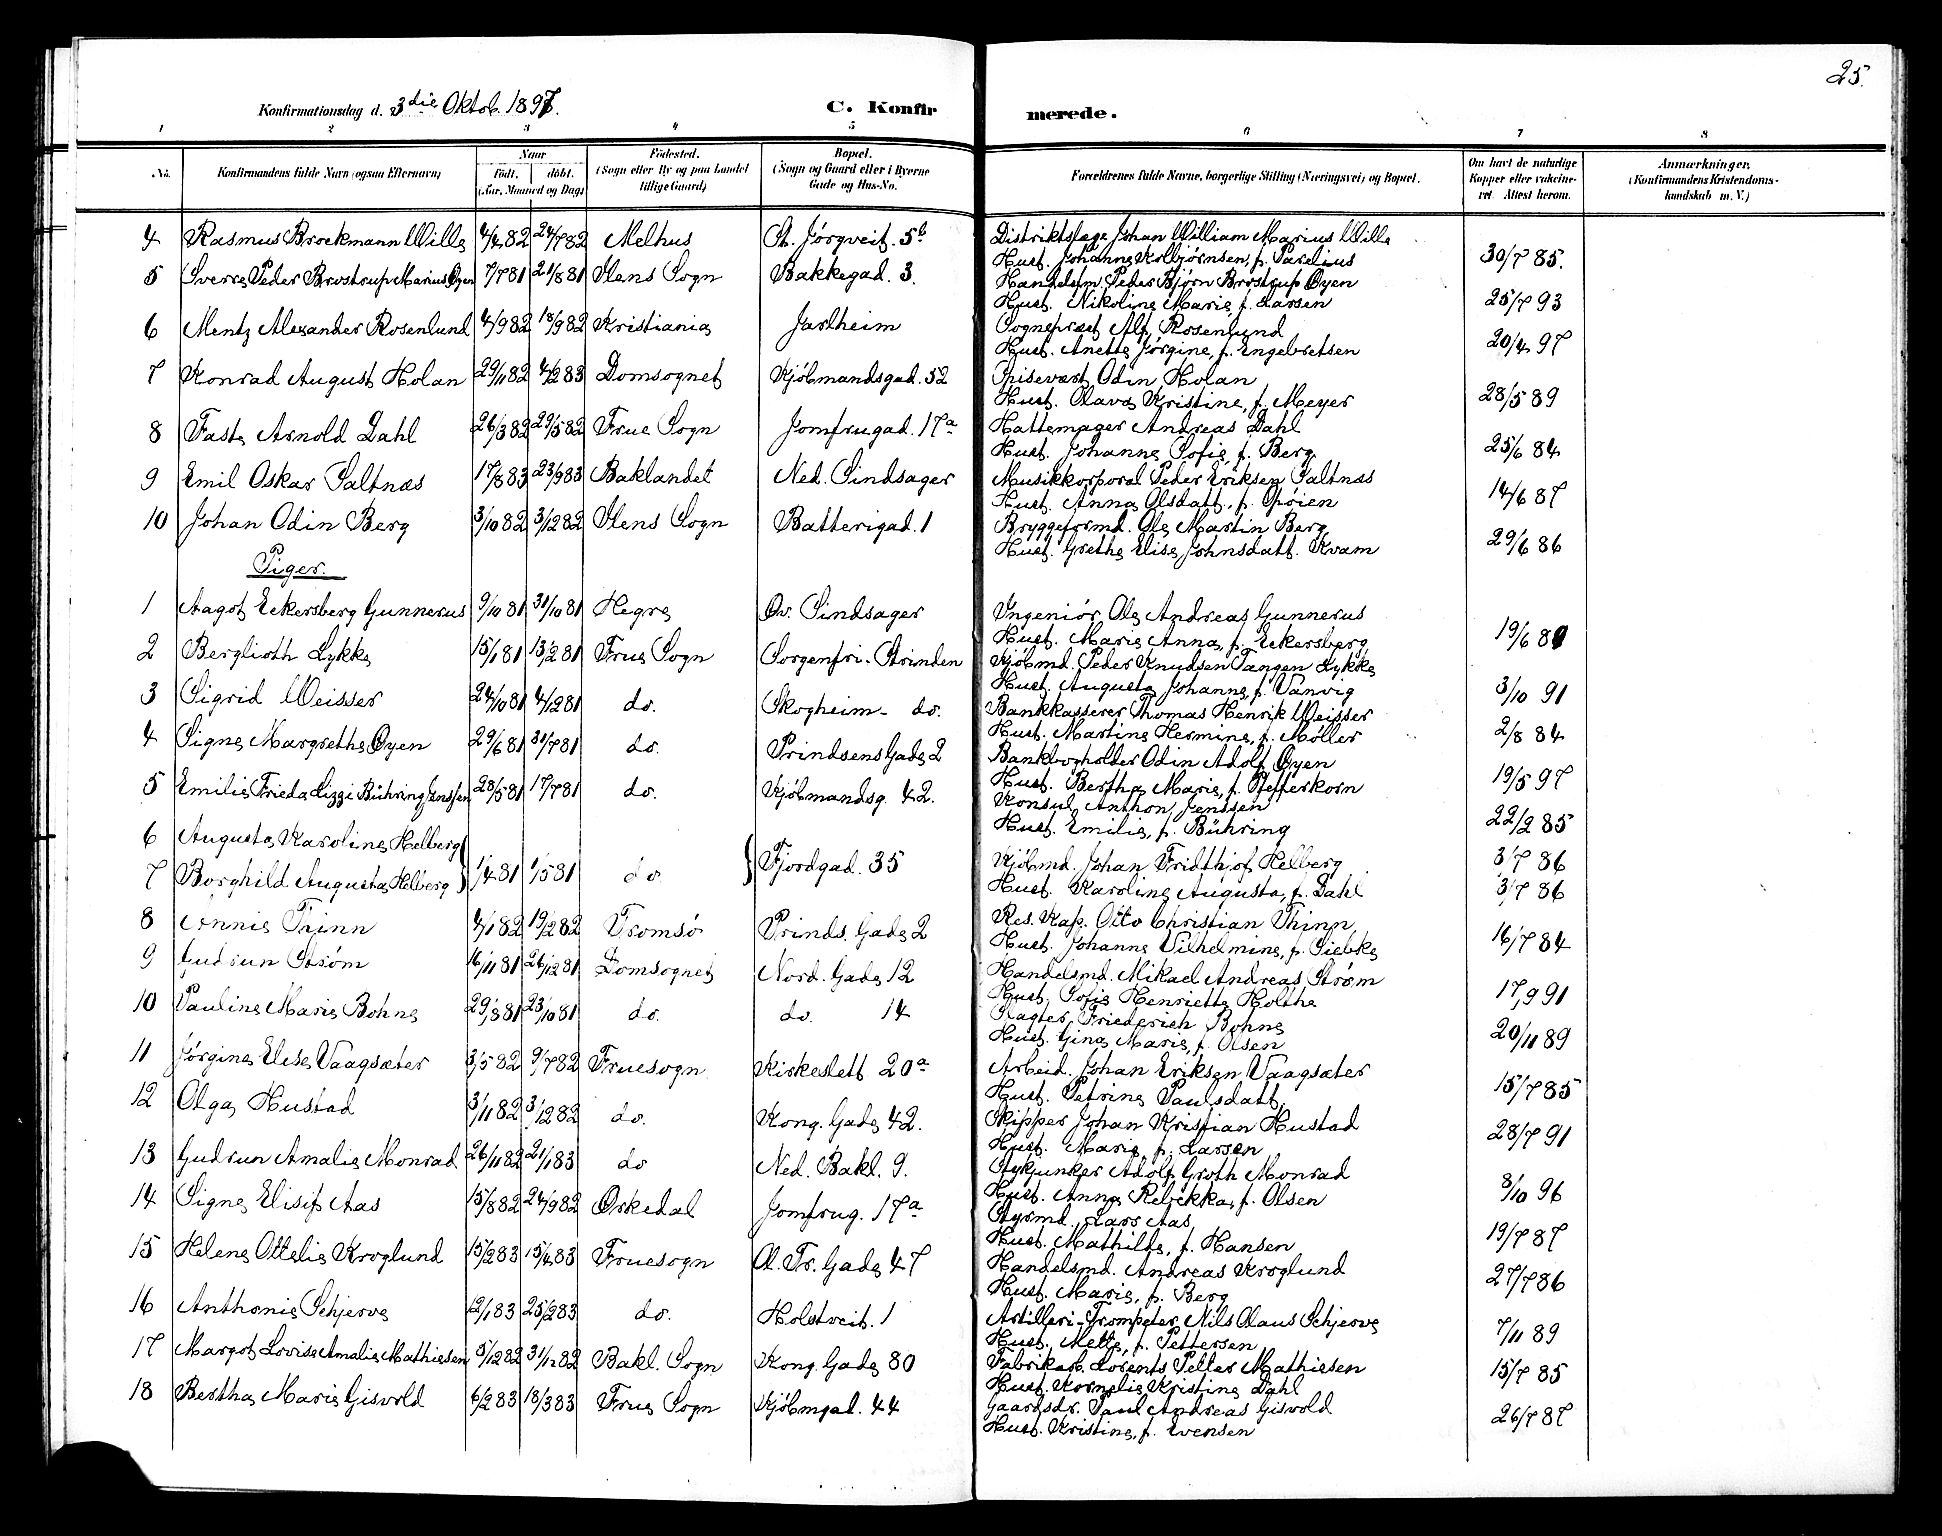 25.
Konfirmationsdag d. 3die Oktob. 1897.
C. Konfirmerede.
1 2 3 4 5 6 7 8
No. Konfirmandens fulde Navn (ogsaa Efternavn) Naar født. døbt. (Aar, Maaned og Dag) Fødested. (Sogn eller By og paa Landet tillige Gaard) Bopæl. (Sogn og Gaard eller i Byerne Gade og Hus-No. Forældrenes fulde Navne, borgerlige Stilling (Næringsvei) og Bopæl. Om havt de naturlige Kopper eller vakcineret. Attest herom. Anmærkninger. (Konfirmandens Kristendomskundskab m. V.)
4 Rasmus Brockmann Wille 4/4 82 24/7 82 Melhus St. Jørgveit. 5b Distriktslæge Johan William Marius Wille
Hust. Johanne Kolbjørnsen, f. Parelius 30/7 85.
5 Sverre Peder Brostrup Marius Øyen 7/7 81 21/8 81 Ilens Sogn Bakkegad. 3. Handelsm. Peder Bjørn Brostrup Øyen
Hust. Nikoline Marie, f. Larsen 25/7 93
6 Mentz Alexander Rosenlund 4/9 82 18/9 82 Kristiania Jarlheim Sognepræst Alf. Rosenlund
Hust. Anette Jørgine, f. Engebretsen 20/4 97
7 Konrad August Holan 29/11 82 4/2 83 Domsognet Kjøbmandsgad. 52 Spisevært Odin Holan
Hust. Olava Kristine, f. Meyer 28/5 89
8 Faste Arnold Dahl 26/3 82 29/5 82 Frue Sogn Jomfrugad. 17a Hattemager Andreas Dahl
Hust. Johanne Sofie, f. Berg 25/6 84
9 Emil Oskar Saltnæs 17/8 83 23/9 83 Baklandet Ned. Sindsager Musikkorporal Peder Eriksen Saltnæs
Hust. Anna Olsdatt. f. Spøien 14/6 87
10 Johan Odin Berg 3/10 82 3/12 82 Ilens Sogn Batterigad. 1 Bryggeformd. Ole Martin Berg
Hust. Grethe Elise Johnsdatt. Kvam 29/6 86
Piger.
1 Aagot Eckersberg Gunnerus 9/10 81 31/10 81 Hegre Øv. Sindsager Ingeniør Ole Andreas Gunnerus
Hust. Marie Anna, f. Eckersberg 19/6 8
2 Berglioth Lykke 15/1 81 13/2 81 Frue Sogn Sorgenfri - Strinden Kjøbmd. Peder Knudsen Tangen Lykke
Hust. Augusta Johanne, f. Vanvig 3/10 91
3 Sigrid Weisser 24/10 81 4/12 81 do. Skogheim - do. Bankkasserer Thomas Henrik Weisser
Hust. Martine Hermine, f. Møller 2/8 84
4 Signe Margrethe Øyen 29/6 81 31/7 81 do. Prindsens Gade 2 Bankbogholder Odin Adolf Øyen
Hust. Bertha Marie, f. Pfefferkorn 19/5 97
5 Emilie Frieda Lizzi Bühring Jenssen 28/5 81 17/7 81 do. Kjøbmandsg. 42. Konsul Anthon Jenssen
Hust. Emilie, f. Bühring 22/2 85
6 Augusta Karoline Helberg
7 Borghild Augusta Helberg } 1/4 81 1/5 81 do. } Fjordgad. 35 Kjøbmd. Johan Fridthjof Helberg 3/7 86
Hust. Karoline Augusta, f. Dahl 3/7 86
8 Annie Thinn 4/1 82 19/2 82 Tromsø Prinds. Gade 2 Res. Kap. Otto Christian Thinn
Hust. Johanne Vilhelmine, f. Siebke 16/7 84
9 Gudrun Strøm 16/11 81 26/12 81 Domsognet Nord. Gade 12 Handelsmd. Mikael Andreas Strøm
Hust. Sofie Henriette Holthe 17/9 91
10 Pauline Marie Bohne 29/8 81 23/10 81 do. do. 14 Slagter Friederich Bohne
Hust. Gina Marie, f. Olsen 20/11 89
11 Jørgine Elise Vaagsæter 3/5 82 9/7 82 Fruesogn Kirkeslett 20a Arbeid. Johan Eriksen Vaagsæter
Hust. Petrine Paulsdatt. 15/7 85
12 Olga Hustad 3/11 82 3/12 82 do. Kong. Gade 42. Skipper Johan Kristian Hustad
Hust. Marie, f. Larsen 28/7 91
13 Gudrun Amalie Monrad 26/11 82 21/1 83 do Ned. Bakl. 9. Stykjunker Adolf Groth Monrad
Hust. Anna Rebekka, f. Olsen 8/10 96
14 Signe Elisif Aas 15/8 82 24/9 82 Orkedal Jomfrug. 17a Styrmd. Lars Aas
Hust. Mathilde, f. Hansen 19/7 87
15 Helene Ottelie Kroglund 15/2 83 15/4 83 Fruesogn Ol. Tr. Gade 47 Handelsmd. Andreas Kroglund
Hust. Marie, f. Berg 27/7 86
16 Anthonie Schjerve 12/1 83 25/2 83 do. Holstveit. 1 Artilleri-Trompeter Nils Olaus Schjerve
Hust. Mette, f. Pettersen 7/11 89
17 Margot Lovise Amalie Mathiesen 5/12 82 31/12 82 Bakl. Sogn Kong. Gade 80 Fabrikarb. Lorents Petter Mathiesen
Hust. Kornelie Kristine Dahl 15/7 85
18 Bertha Marie Gisvold 6/2 83 18/3 83 Frue Sogn Kjøbmgad. 44 Gaardsdr. Paul Andreas Gisvold
Hust. Kristine, f. Evensen 26/7 87